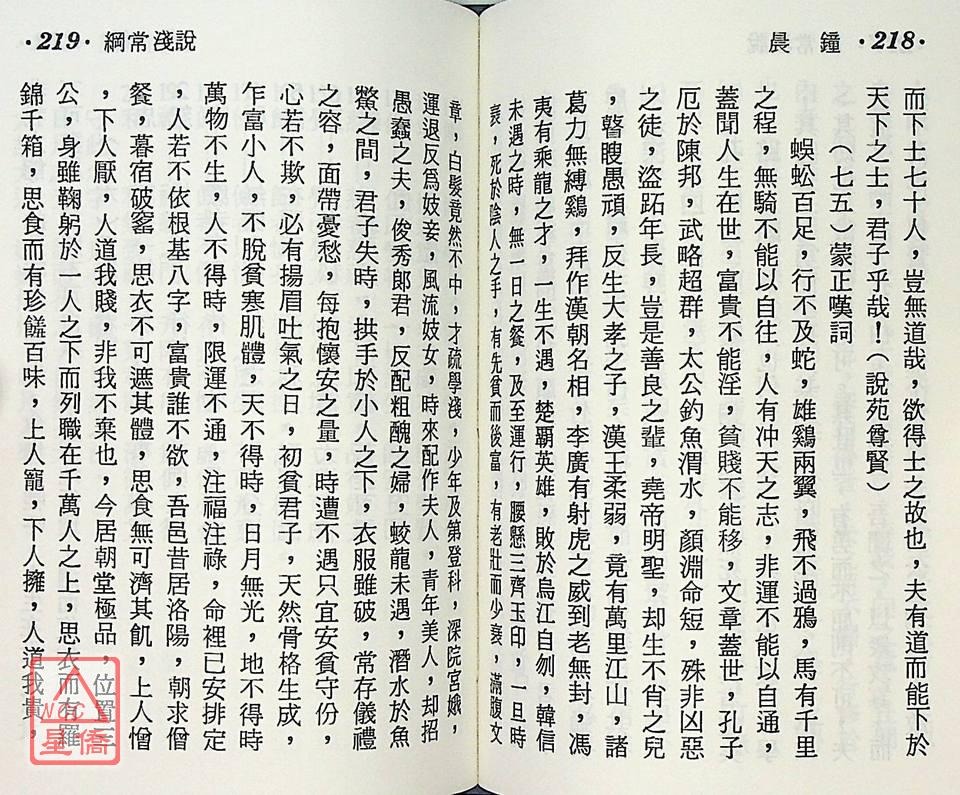 晨鐘 ·218·
而下士七十人，豈無道哉，欲得士之故也，夫有道而能下於
天下之士，君子乎哉！（說苑尊賢）
（七五）蒙正嘆詞
蜈蚣百足，行不及蛇，雄鷄兩翼，飛不過鴉，馬有千里
之程，無騎不能以自往，人有冲天之志，非運不能以自通，
蓋聞人生在世，富貴不能淫，貧賤不能移，文章蓋世，孔子
厄於陳邦，武略超群，太公釣魚渭水，顏淵命短，殊非凶惡
之徒，盜跖年長，豈是善良之輩，堯帝明聖，却生不肖之兒
，瞽瞍愚頑，反生大孝之子，漢王柔弱，竟有萬里江山，諸
葛力無縛鷄，拜作漢朝名相，李廣有射虎之威到老無封，馮
夷有乘龍之才，一生不遇，楚霸英雄，敗於烏江自刎，韓信
未遇之時，無一日之餐，及至運行，腰懸三齊玉印，一旦時
衰，死於陰人之手，有先貧而後富，有老壯而少衰，滿腹文
·219· 綱常淺說
章，白髮竟然不中，才疏學淺，少年及第登科，深院宮娥，
運退反爲妓妾，風流妓女，時來配作夫人，青年美人，却招
愚蠢之夫，俊秀郞君，反配粗醜之婦，蛟龍未遇，潛水於魚
鱉之間，君子失時，拱手於小人之下，衣服雖破，常存儀禮
之容，面帶憂愁，每抱懷安之量，時遭不遇只宜安貧守份，
心若不欺，必有揚眉吐氣之日，初貧君子，天然骨格生成，
乍富小人，不脫貧寒肌體，天不得時，日月無光，地不得時
萬物不生，人不得時，限運不通，注福注祿，命裡已安排定
，人若不依根基八字，富貴誰不欲，吾邑昔居洛陽，朝求僧
餐，暮宿破窰，思衣不可遮其體，思食無可濟其飢，上人憎
，下人厭，人道我賤，非我不棄也，今居朝堂極品，位置三
公，身雖鞠躬於一人之下而列職在千萬人之上，思衣而有羅
錦千箱，思食而有珍饈百味，上人寵，下人擁，人道我貴，
NCC
星僑